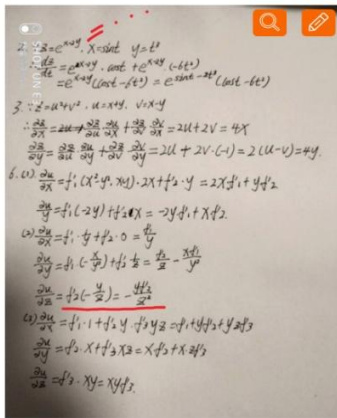 2. z=e^{x-2y}, x=sint y=t³
∴ dz/dt=e^{x-2y}·cost+e^{x-2y}(-6t²)
=e^{x-2y}(cost-6t²)=e^{sint-2t³}(cost-6t²)
3. ∵z=u²+v², u=x+y, v=x-y
∴ ∂z/∂x= ∂z/∂u ∂u/∂x+∂z/∂v ∂v/∂x=2u+2v=4x
∂z/∂y=∂z/∂u ∂u/∂y+∂z/∂v ∂v/∂y=2u+2v·(-1)=2(u-v)=4y.
6.(1). ∂u/∂x=f'₁(x²y²,xy)·2x+f'₂·y=2xf'₁+yf'₂
∂u/∂y=f'₁(-2y)+f'₂·x=-2yf'₁+xf'₂.
(2) ∂u/∂x=f'₁·1/y+f'₂·0=f'₁/y
∂u/∂y=f'₁·(-x/y²)+f'₂·1/z=f'₂/z-xf'₁/y²
∂u/∂z=f'₂(-y/z²)=-yf'₂/z²
(3) ∂u/∂x=f'₁·1+f'₂y·f'₃yz=f'₁+yf'₂+yzf'₃
∂u/∂y=f'₂·x+f'₃xz=xf'₂+xzf'₃
∂u/∂z=f'₃·xy=xyf'₃.